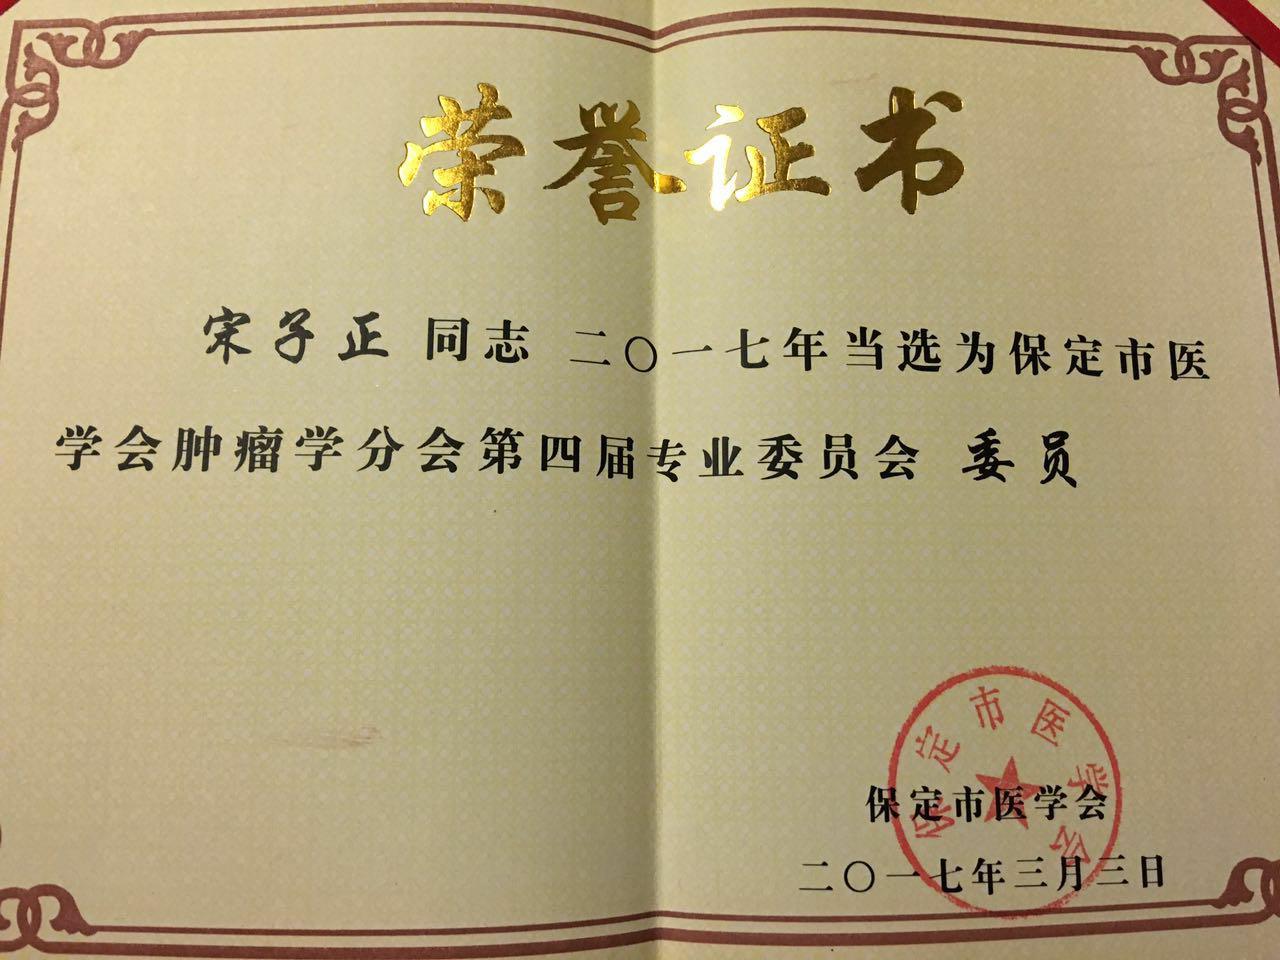 荣誉证书
宋子正 同志 二〇一七年当选为保定市医
学会肿瘤学分会第四届专业委员会 委员
保定市医学会
保定市医学会
二〇一七年三月三日